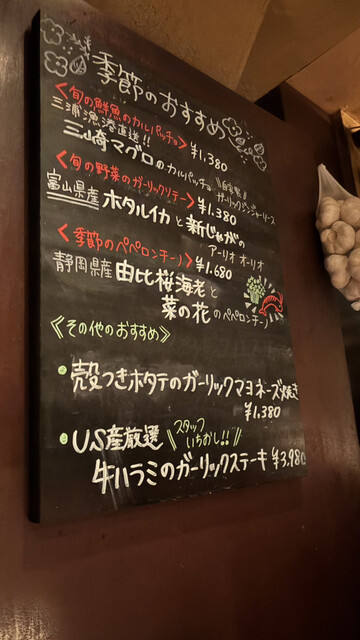 季節のおすすめ
〈旬の鮮魚のカルパッチョ〉¥1,380
三浦漁港直送!!
三崎マグロのカルパッチョ
自家製!!
ガーリックジンジャーソース
〈旬の野菜のガーリックソテー〉¥1.380
富山県産 ホタルイカと新じゃがの
アーリオ オーリオ
〈季節のペペロンチーノ〉¥1.680
静岡県産 由比桜海老と
菜の花のペペロンチーノ
《その他のおすすめ》
殻つきホタテのガーリックマヨネーズ焼き
¥1.380
US産厳選 スタッフ
いちおし!!
牛ハラミのガーリックステーキ ¥3.980